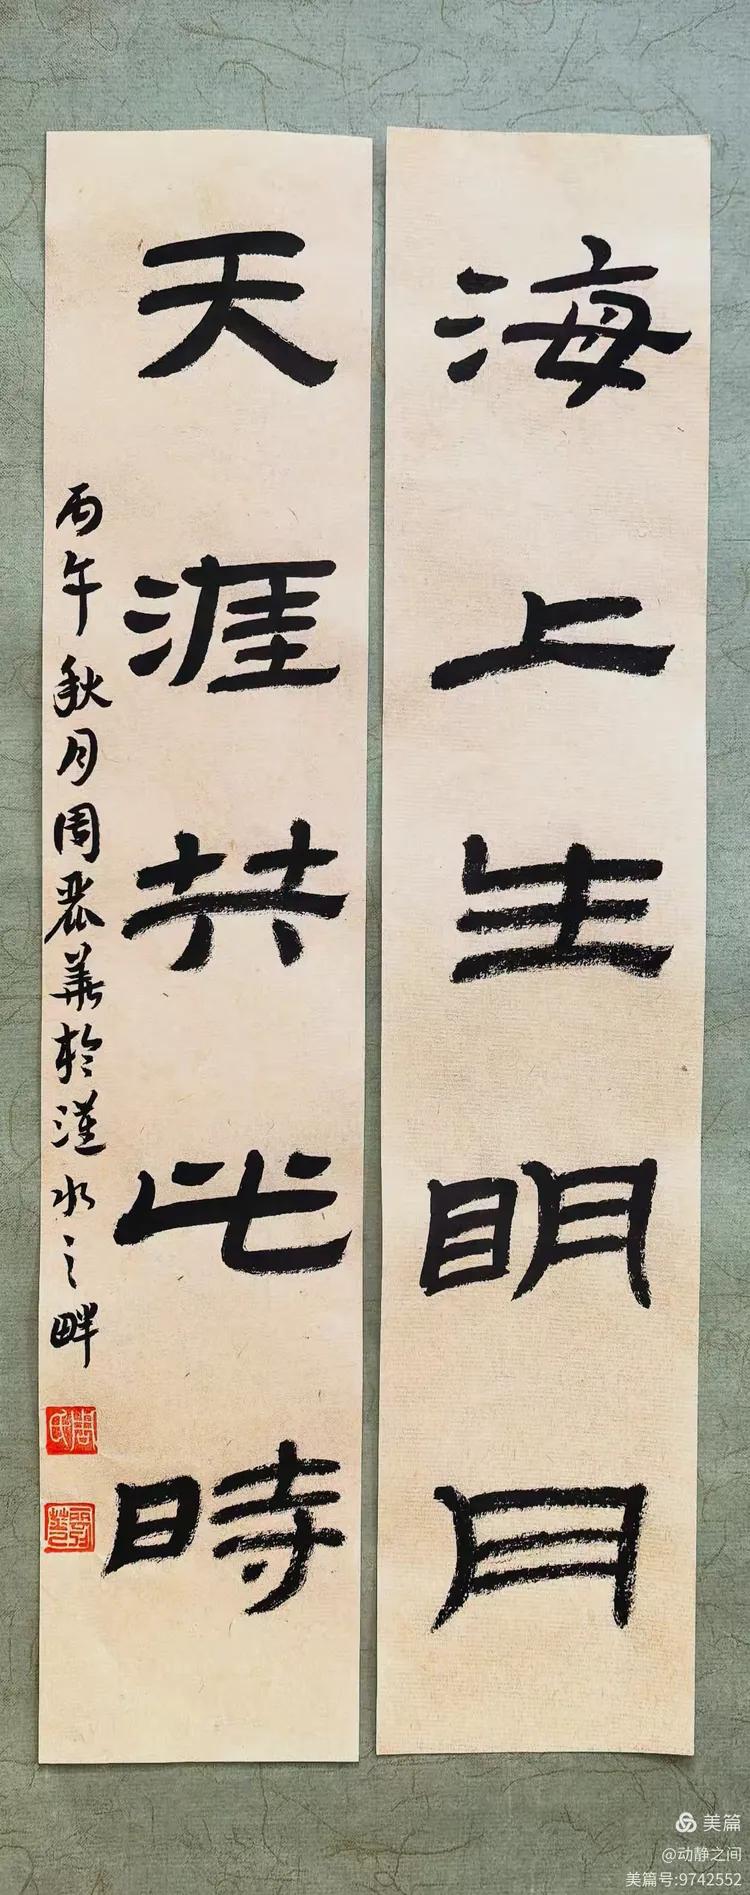 海上生明月
天涯共此時
丙午秋月周麗華於漢水之畔
美篇
@动静之间
美篇号:9742552